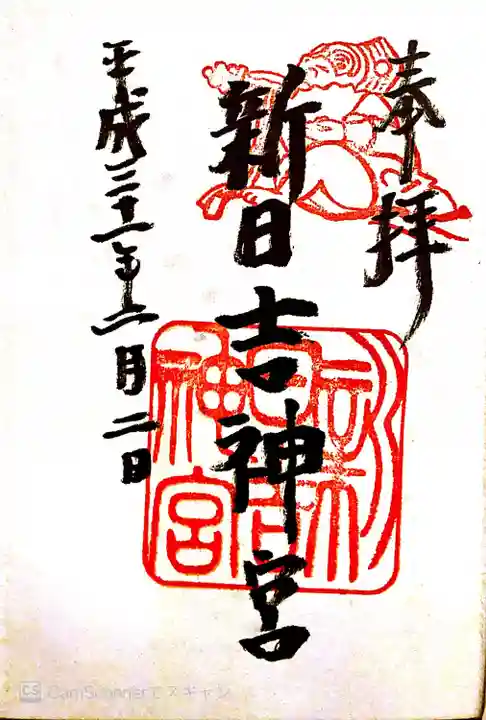 奉拝
新日吉神宮
平成二十二年六月二日
新日吉神宮
CS CamScannerでスキャン